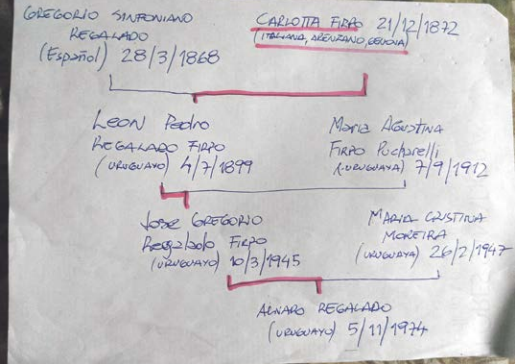 GREGORIO SINFONIANO
REGALADO
(Español) 28/3/1868
CARLOTTA FIRPO 21/12/1872
(ITALIANA, ARENZANO, GENOVA)
LEON Pedro
REGALADO FIRPO
(URUGUAYO) 4/7/1899
Maria AGUSTINA
FIRPO Pucharelli
(URUGUAYA) 7/9/1912
Jose GREGORIO
Regalado FIRPO
(URUGUAYO) 10/3/1945
MARIA CRISTINA
MOREIRA
(URUGUAYA) 26/2/1947
ALVARO REGALADO
(URUGUAYO) 5/11/1974